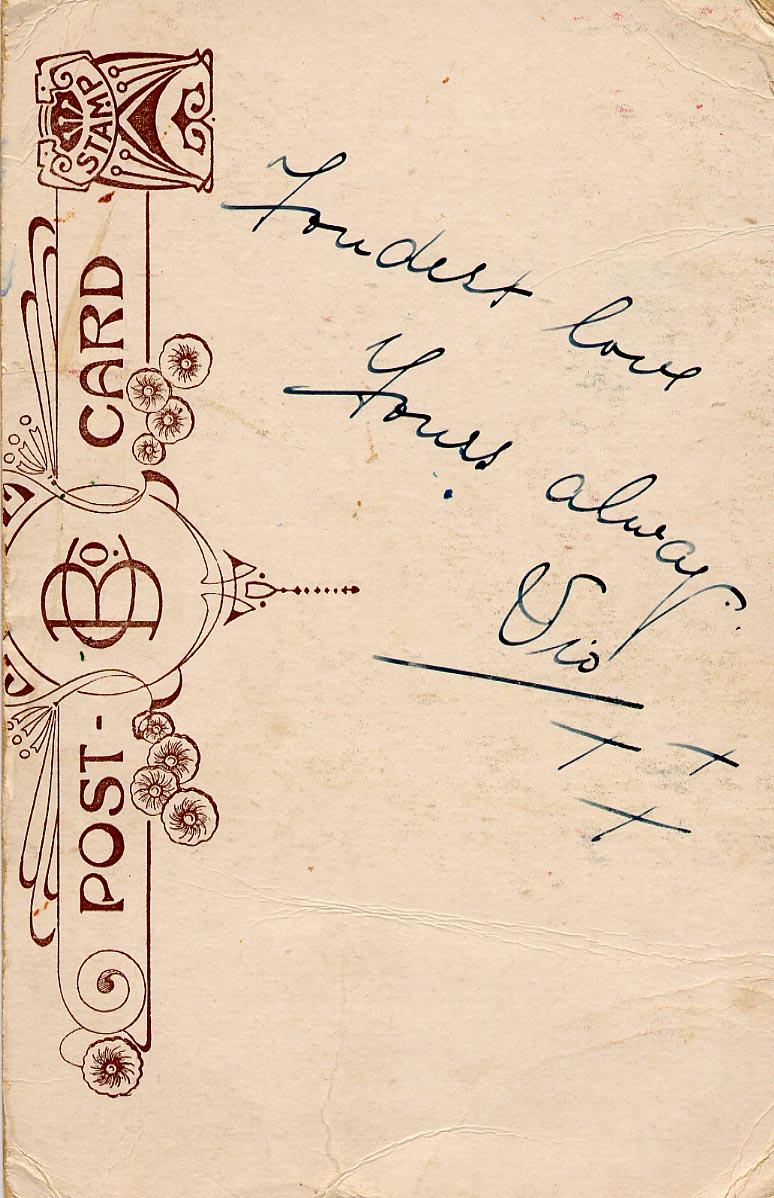 STAMP
POST-CARD
Fondest love
Yours always
Vio
+ +
+